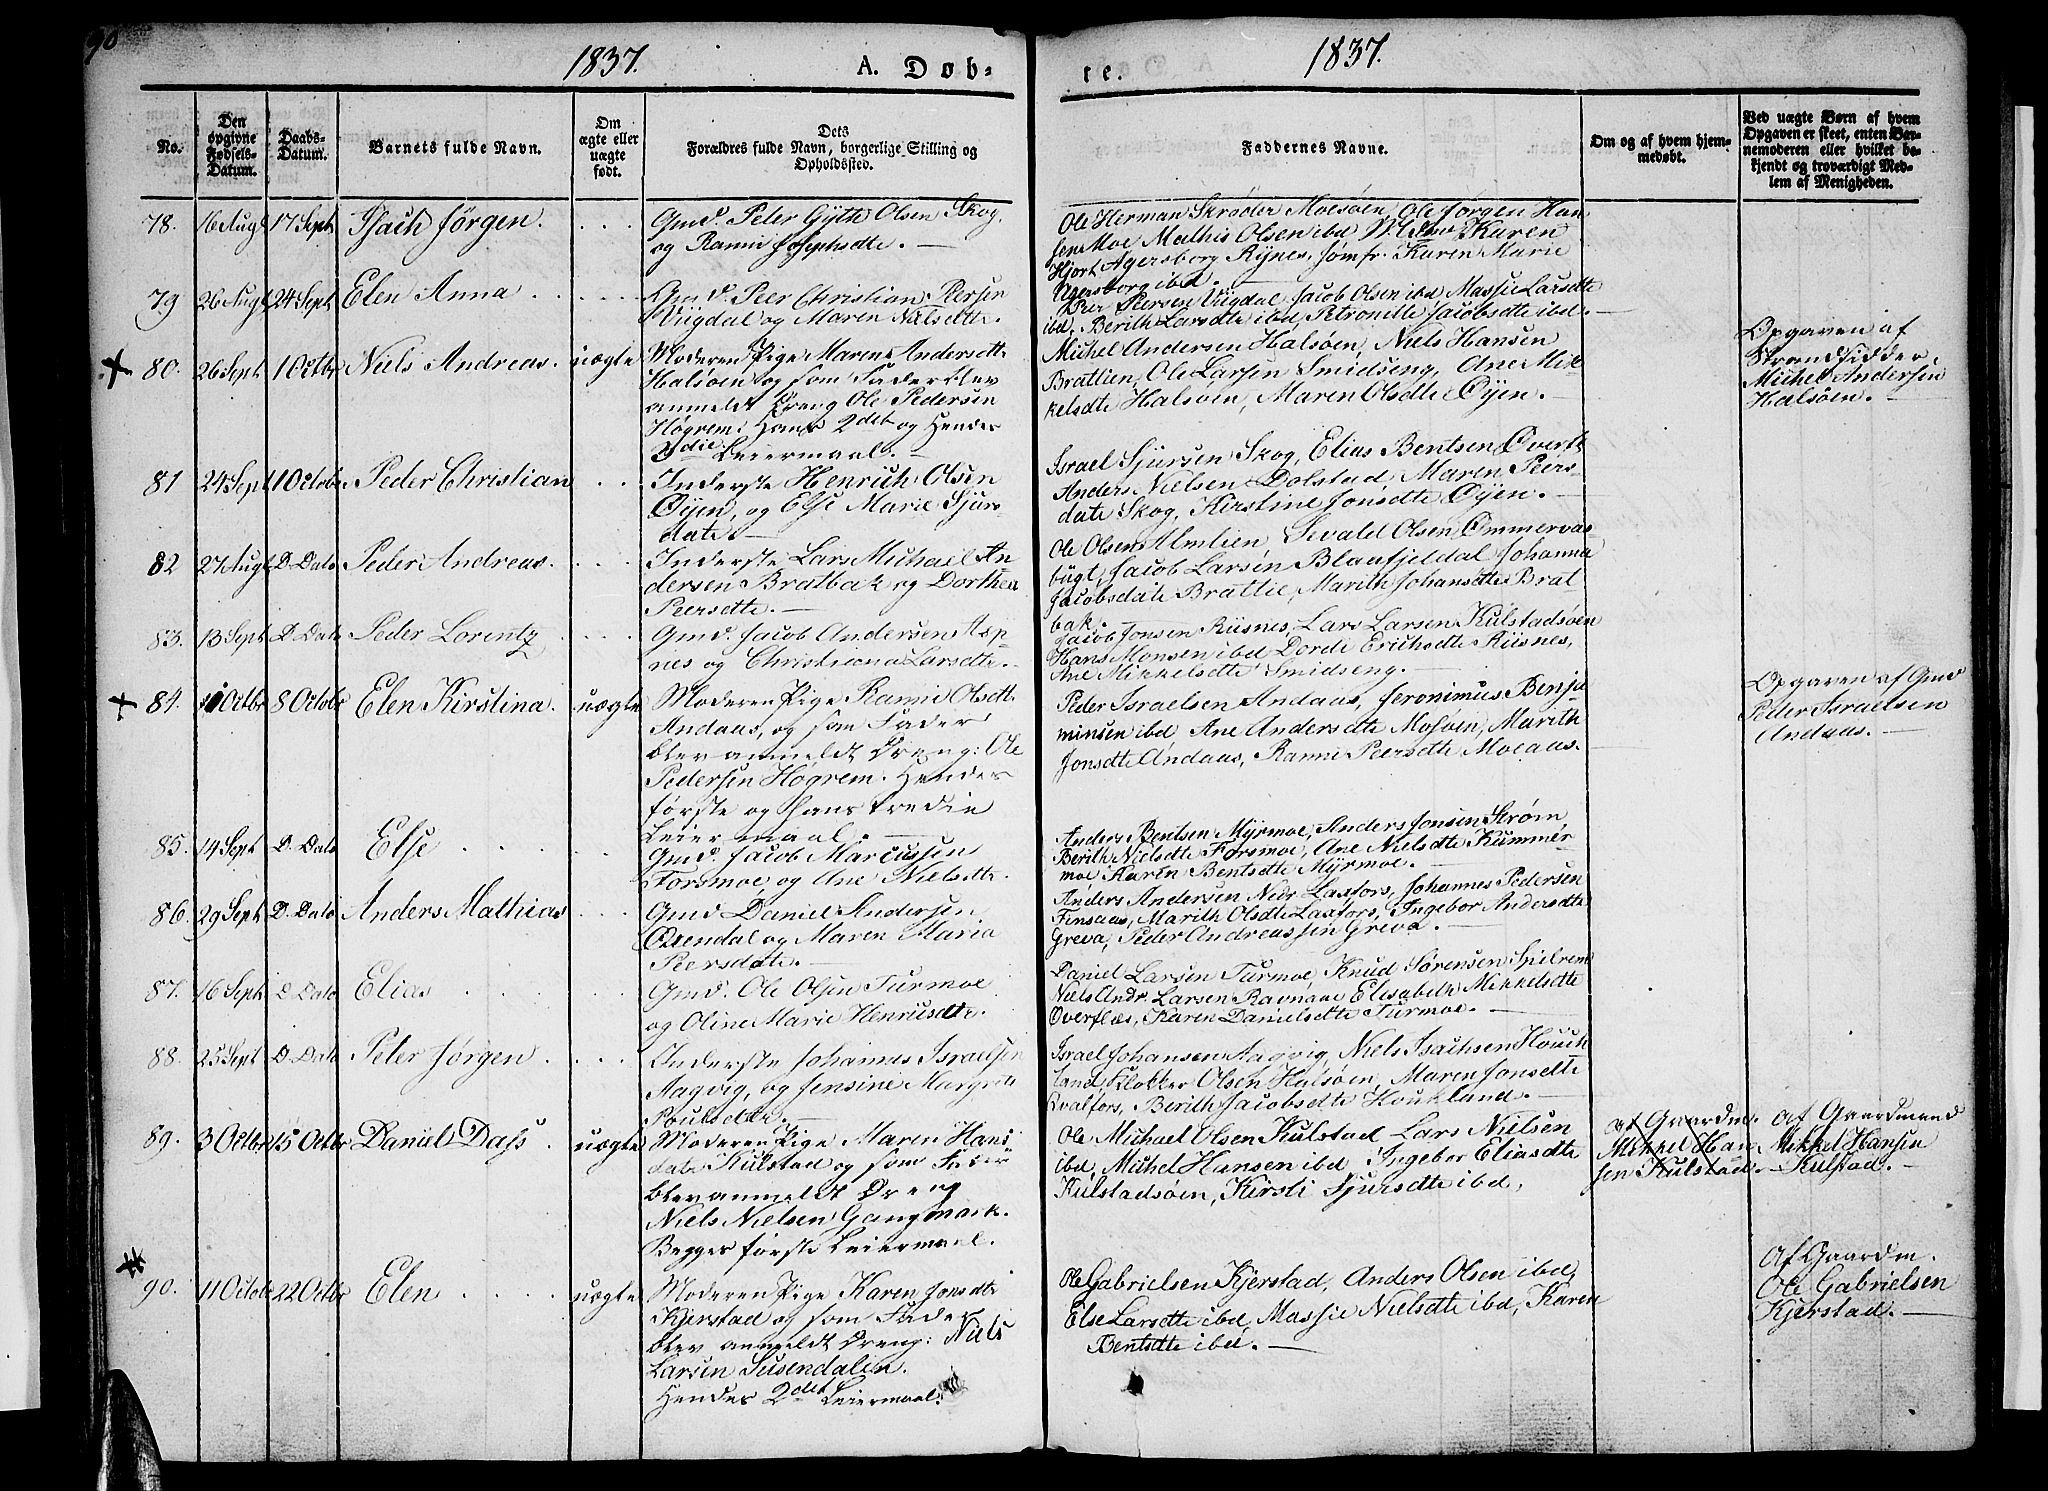 90
1837.
A. Døb-
te.
1837.
No.
Den
opgivne
Fødsels-
Datum.
Daabs-
Datum.
Barnets fulde Navn.
Om
ægte eller
uægte
født.
Dets
Forældres fulde Navn, borgerlige Stilling og
Opholdssted.
Faddernes Navne.
Om og af hvem hjem-
medøbt.
Ved uægte Børn af hvem
Opgaven er skeet, enten Bar-
nemoderen eller hvilket be-
kjendt og troværdigt Med-
lem af Menigheden.
78. 16 Augt 17 Sept Isach Jørgen.
Gmd. Peter Gytte Olsen Skog,
og Rannie Josephsdte.
Ole Herman Skrøder Moesøen, Ole Jørgen Han
sen Moe Mathis Olsen ibd Karen
Hjort Agersborg Rynes, Jomfr. Karen Marie
Agersborg ibd.
79 26 Augt 24 Sept Elen Anna
Gmd. Peer Christian Peersen
Viigdal og Maren Nielsdtte.
Peer Peersen Viigdal, Jacob Olsen ibd Massie Larsdtte
ibd, Berith Larsdtte ibd, Petronille Jacobsdte ibd.
80. 26 Sept 1 Octbr Niels Andreas. uægte
Moderen Pige Maren Andersdtt
Halsøen og som Fader blev
anmeldt Dreng Ole Pedersen
Høgrem: Hans 2det og Hendes
3die Leiermaal.
Michel Andersen Halsøen, Niels Hansen
Brattlien, Ole Larsen Smidseng, Ane Mik
kelsdte Halsøen, Maren Olsdtte Øyen.
Opgaven af
Strandsidder,
Michel Andersen
Halsøen.
81 24 Sept 1 Octobr Peder Christian
Inderste Henrich Olsen
Øyen, og Else Marie Sjurs
datte.
Israel Sjursen Skog, Elias Bentsen Øverlt
Anders Nielsen Dolstad, Maren Peers-
date Skog, Kirstine Jonsdte Øyen.
82 27 Augt D. Dato Peder Andreas.
Inderste Lars Michael An
dersen Bratbak og Dorthea
Peersdtte.
Ole Olsen Almlien, Sevald Olsen Ømmervas
bugt, Jacob Larsen Blaafjeldal, Johanna
Jacobsdate Brattlie, Marith Johansdtte Brat
bak.
83. 13 Sept D. Dato Peder Lorentz
Gmd. Jacob Andersen Asp
nes og Christiana Larsdtte.
Jacob Jonsen Riisnes, Lars Larsen Kulstadsøen
Hans Monsen ibd Dorde Erichsdte Riisnes,
Ane Mikkelsdtte Smidseng.
84. 1 Octbr 8 Octobr Elen Kirstina. uægte
Moderen Pige Rannie Olsdtt
Andaas, og som Fader
blev anmeldt Dreng: Ole
Pedersen Høgrem. Hendes
første og hans tredie
Leiermaal.
Peder Israelsen Andaas, Jeronimus Benja
minsen ibd Ane Andersdte Mosøen, Marith
Jonsdte Andaas, Ranni Peersdtte Moeaas.
Opgaven af Gmd
Peder Israelsen
Andaas.
85. 14 Sept D. Dato Else
Gmd. Jacob Marcussen
Forsmoe, og Ane Nielsdtte.
Anders Bentsen Myrmoe, Anders Jonsen Strøm,
Berith Nielsdtte Forsmoe, Ane Nielsdte Kummer
moe Karen Bentsdtte Myrmoe.
86. 29 Sept D. Dato Anders Mathias
Gmd Daniel Andersen
Øxendal og Maren Maria
Peersdatte.
Anders Andersen Nedr Laxfors, Johannes Pedersen
Finsaas, Marith Olsdte Laxfors, Ingebor Andersdtte
Greva, Peder Andreassen Greva.
87. 16 Sept D Dato Elias
Gmd. Ole Olsen Turmoe
og Oline Marie Henrisdtte.
Daniel Larsen Turmoe, Knud Sørensen Spielrem
Niels Andr. Larsen Ravnaae Elisabeth Mikkelsdtte
Øverflæs, Karen Danielsdtte Turmoe.
88. 25 Sept D. Dato Peter Jørgen.
Inderste Johannes Israelsen
Aagvig, og Jensine Margrete
Poulsdtte.
Israel Johansen Aagvig, Niels Isachsen Houch
land, Klokker Olsen Halsøen, Maren Jonsdtte
Qvalfors, Berith Jacobsdte Houkland.
89. 3 Octbr 15 Octbr Daniel Dass. uægte
Moderen Pige Maren Hans
date Kulstad og som Fader
blev anmeldt Dreng
Niels Nielsen Gangsmark.
Begges første Leiermaal.
Ole Michael Olsen Kulstad Lars Nielsen
ibd, Michel Hansen ibd Ingebor Eliasdtte
Kulstadsøen, Kirsti Sjursdtte ibd,
af Gaardm.
Mikkel Han
sen Kulstad.
af Gaardmand
Mikkel Hansen
Kulstad.
90. 11 Octobr 22 Octbr Elen uægte
Moderen Pige Karen Jonsdtte
Kjerstad og som Fader
blev anmeldt Dreng: Niels
Larsen Susendalen.
Hendes 2det Leiermaal.
Ole Gabrielsen Kjerstad, Anders Olsen ibd,
Else Larsdtte ibd, Massie Nielsdte ibd, Karen
Bentsdtte ibd.
Af Gaardm.
Ole Gabrielsen
Kjerstad.